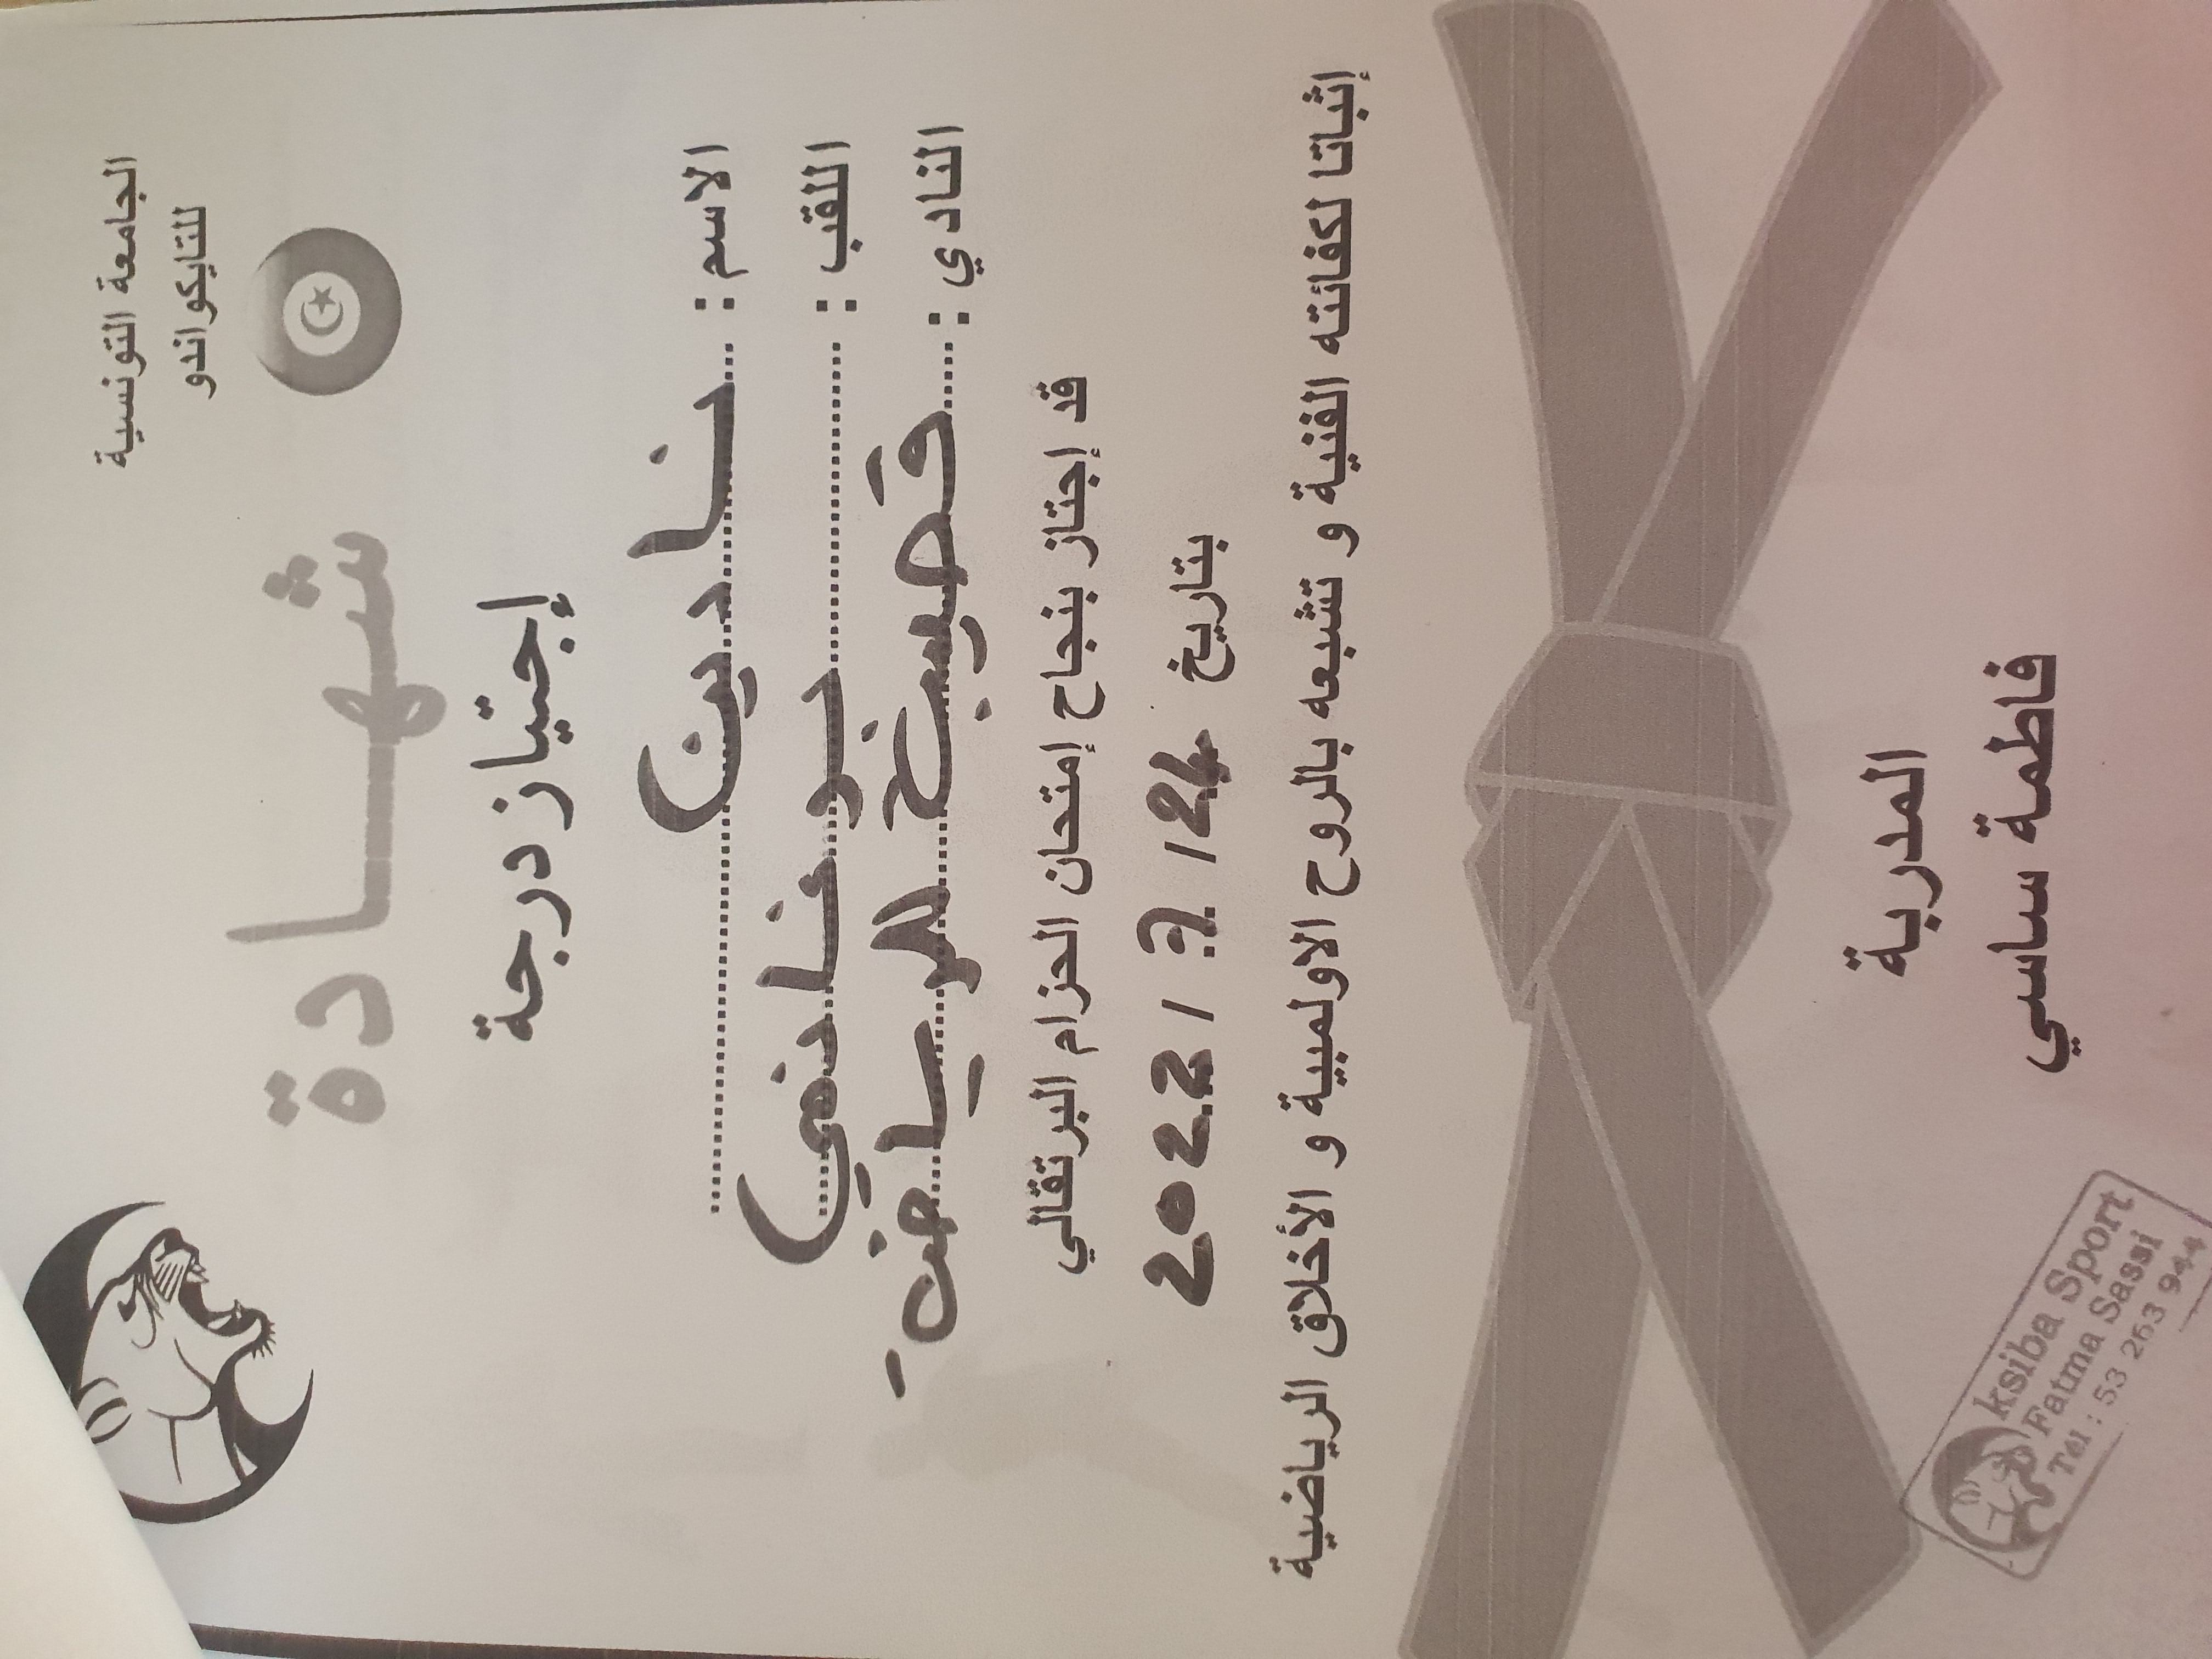 الجامعة التونسية
للتايكواندو
شهادة
إجتياز درجة
الاسم : نادين
اللقب :
النادي : قصيبة الرياضة
قد إجتاز بنجاح إمتحان الحزام البرتقالي
بتاريخ 24 / 7 / 2022
إثباتا لكفائته الفنية و تشبعه بالروح الاولمبية و الأخلاق الرياضية
المدربة
فاطمة ساسي
ksiba Sport
Fatma Sassi
Tél : 53 263 944